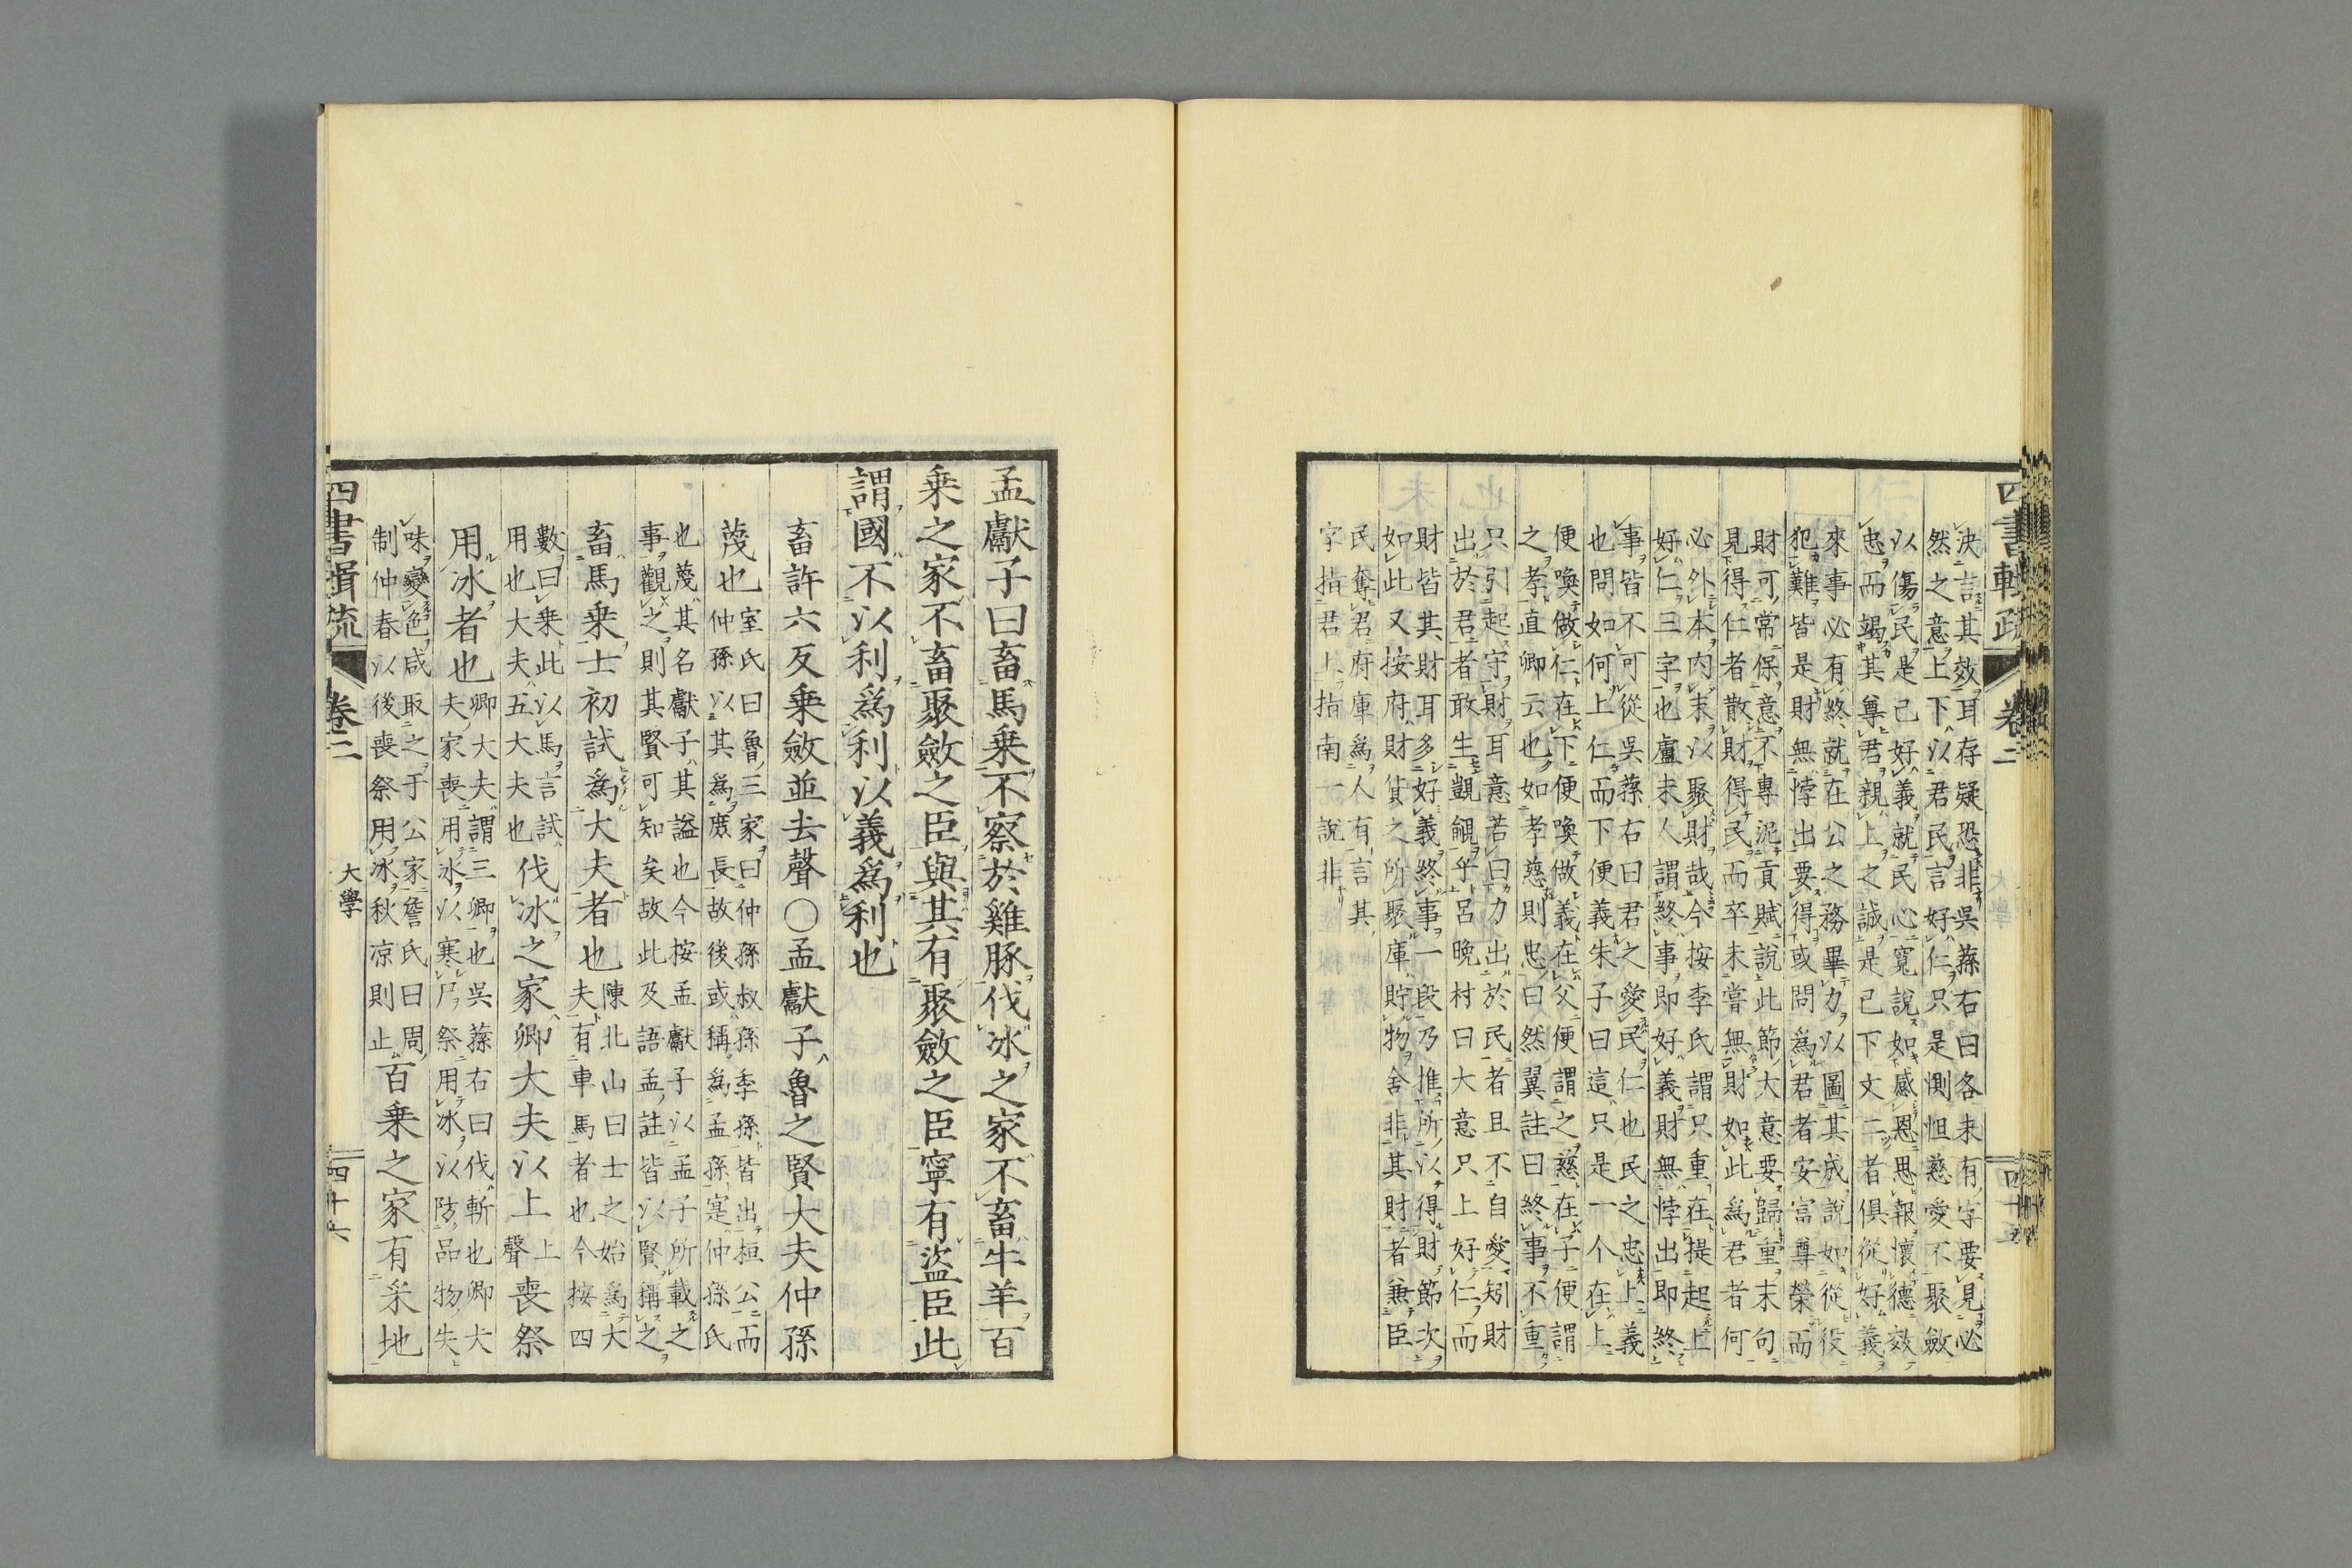 決言其效耳存疑恐非吳蓀右曰各未有字要見必
然之意上下以君民言好仁只是惻怛慈愛不聚斂
以傷民是己好義就民心寬說如感恩思報懷德效
忠而竭其尊君親上之誠是已下文二者俱從好義
來事必有終就在公之務畢力以圖其成說如從役
犯難皆是財無悖出要得或問為君者安富尊榮而
財可常保意不專泥貢賦說此節大意要歸重末句
見得仁者散財得民而卒未嘗無財如此為君者何
必外本內末以聚財哉今按李氏謂只重在提起上
好仁三字也盧未人謂終事即好義財無悖出即終
事皆不可從吳蓀右曰君之愛民仁也民之忠上義
也問如何上仁而下便義朱子曰這只是一个在上
便喚做仁在下便喚做義在父便謂之慈在子便謂
之孝直卿云也如孝慈則忠曰然翼註曰終事不重
只引起守財耳意若曰力出於民者且不自愛矧財
出於君者敢生覬覦乎呂晚村曰大意只上好仁而
財皆其財耳多好義終事一段乃推所以得財節次
如此又按府財貨之所聚庫貯物舍非其財者兼臣
民奪君府庫為人有言其
字指君上指南一說非
四書輯疏 卷二 四十五
孟獻子曰畜馬乗不察於雞豚伐冰之家不畜牛羊百
乗之家不畜聚斂之臣與其有聚斂之臣寧有盜臣此
謂國不以利爲利以義爲利也
畜許六反乗斂並去聲〇孟獻子魯之賢大夫仲孫
蔑也室氏曰魯三家曰仲孫叔孫季孫皆出桓公而
仲孫以其爲庶長故後或稱爲孟孫寔仲孫氏
也蔑其名獻子其謚也今按孟獻子以孟子所載之
事觀之則其賢可知矣故此及語孟註皆以賢稱之
畜馬乗士初試爲大夫者也陳北山曰士之始爲大
夫有車馬者也今按四
數曰乗此以馬言試
用也大夫五大夫也伐冰之家卿大夫以上上聲喪祭
用冰者也卿大夫謂三卿也吳蓀右曰伐斬也卿大
夫家喪用冰以寒尸祭用冰以防品物失
味變色咸取之于公家詹氏曰周
制仲春以後喪祭用冰秋凉則止百乗之家有采地
四書輯疏 卷二 大學 四十六